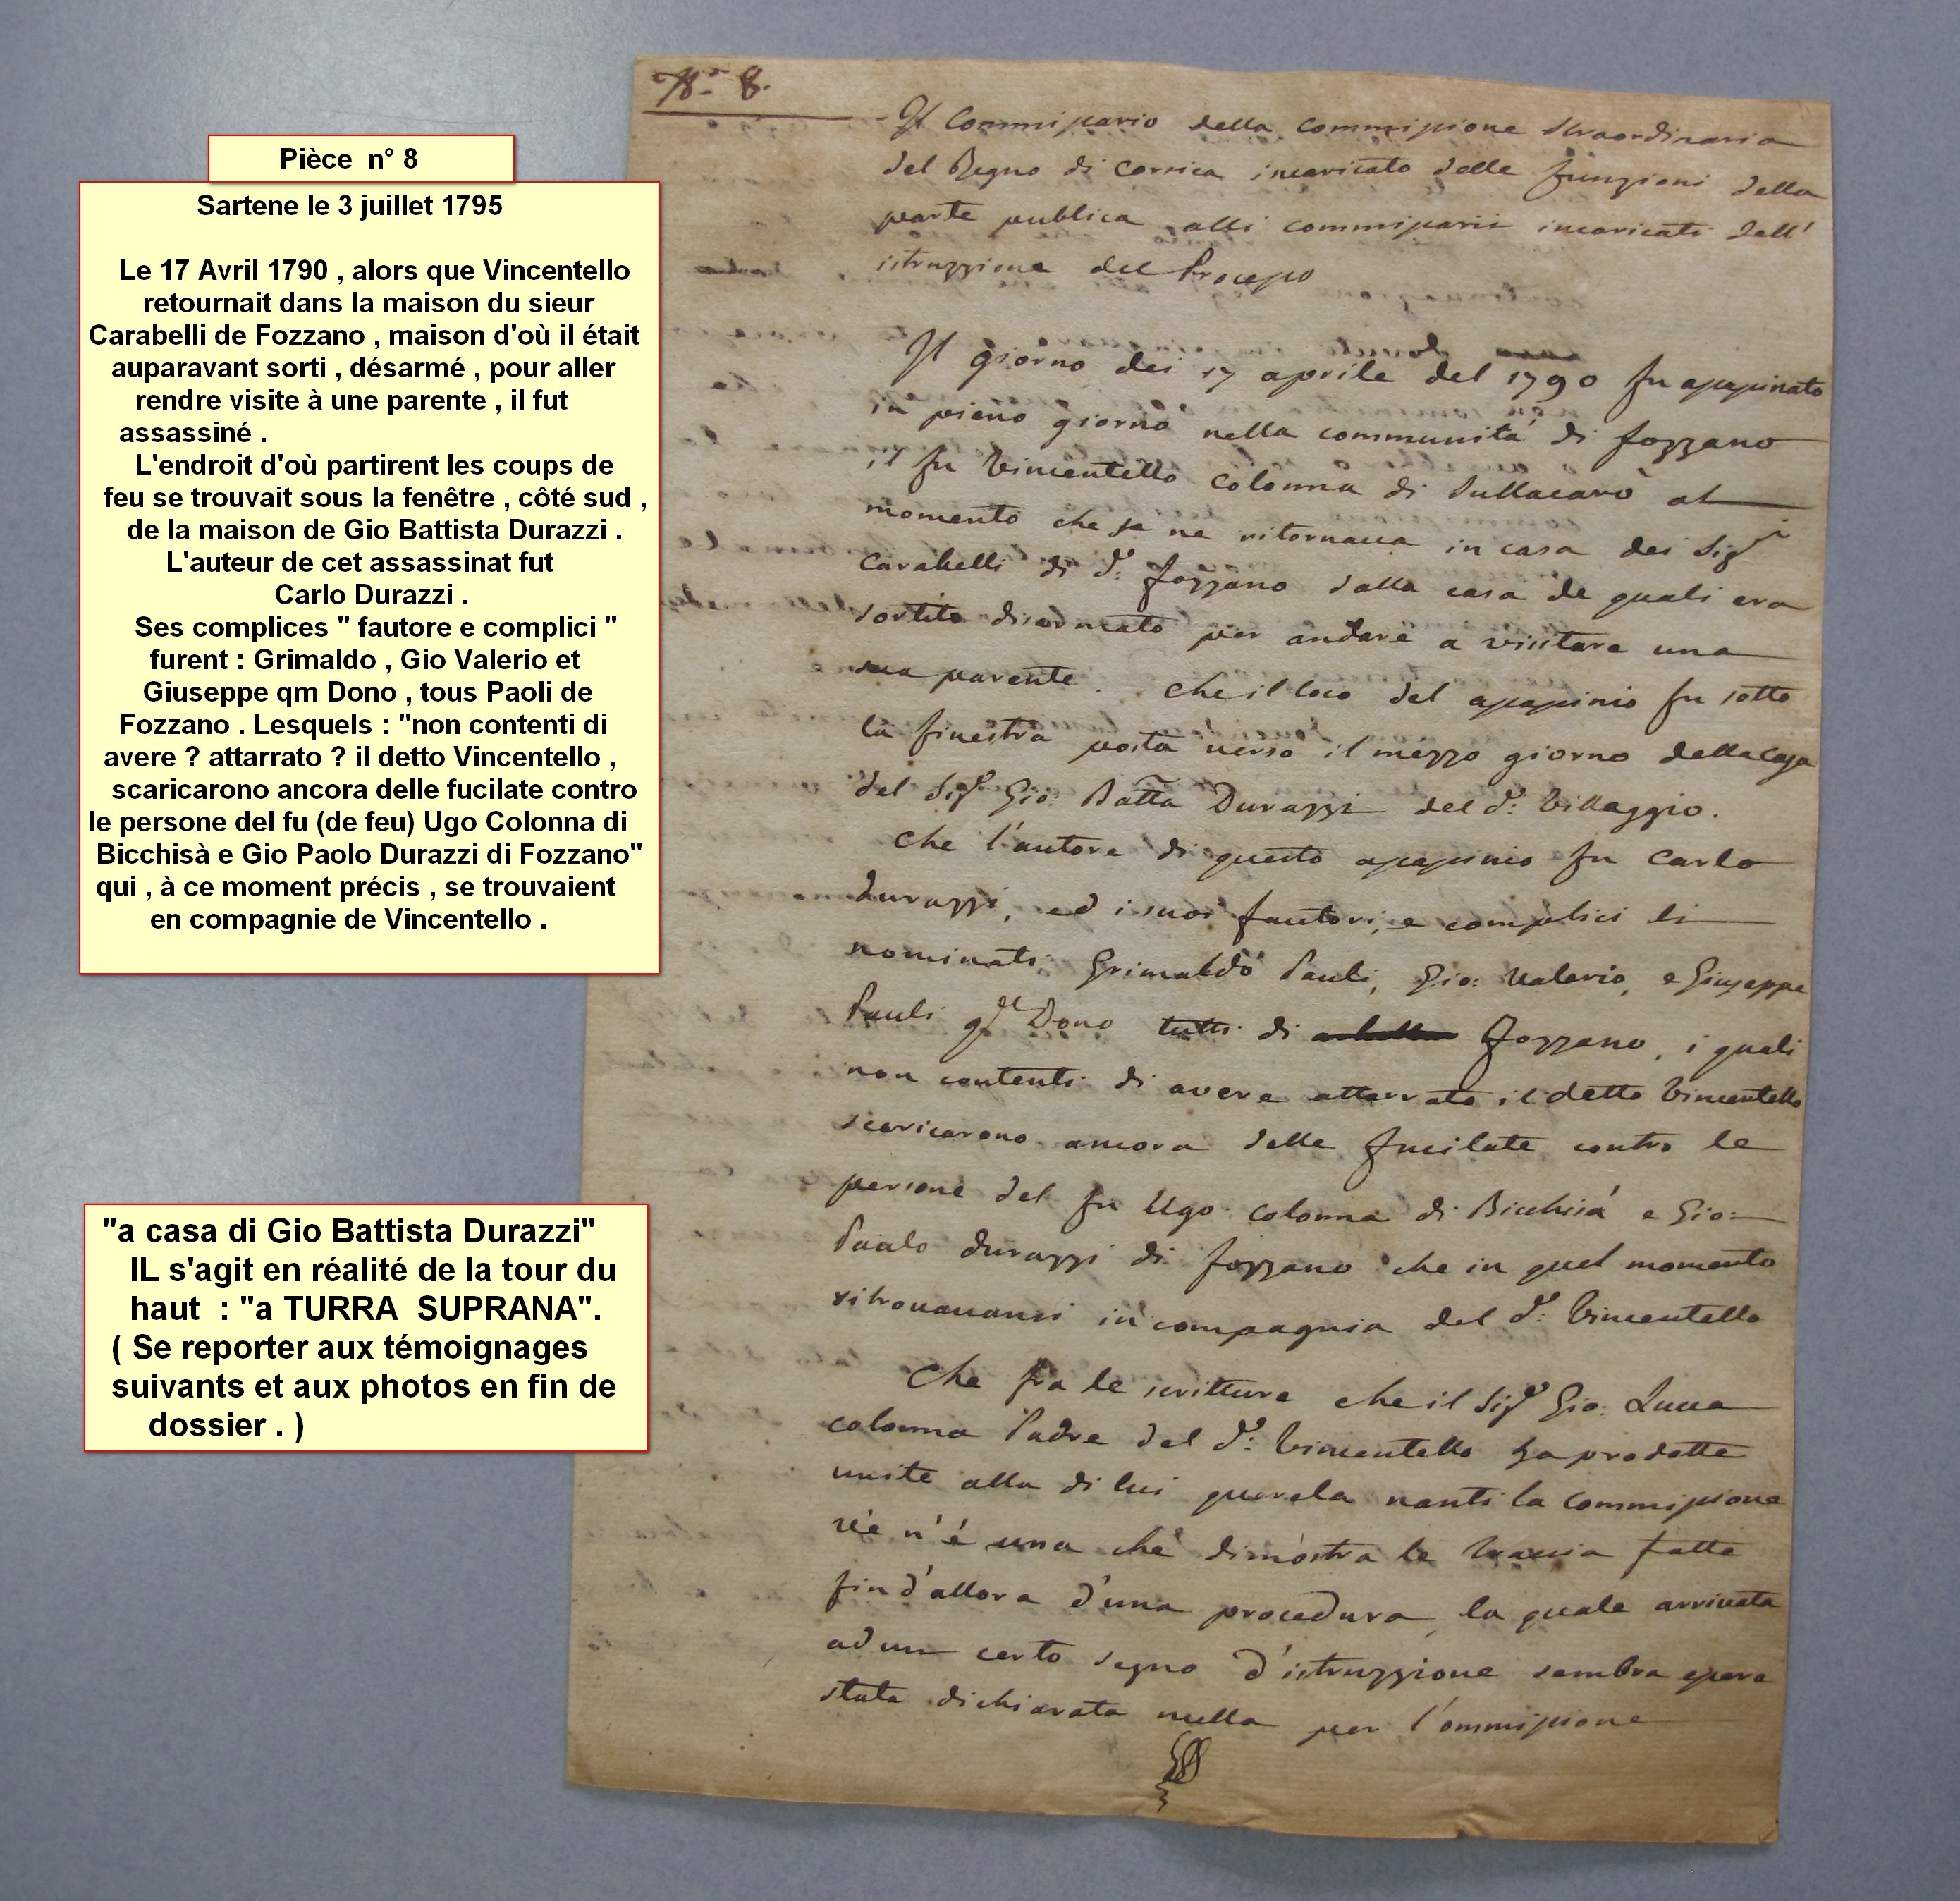 Pièce n° 8
Sartene le 3 juillet 1795
Le 17 Avril 1790 , alors que Vincentello
retournait dans la maison du sieur
Carabelli de Fozzano , maison d'où il était
auparavant sorti , désarmé , pour aller
rendre visite à une parente , il fut
assassiné .
L'endroit d'où partirent les coups de
feu se trouvait sous la fenêtre , côté sud ,
de la maison de Gio Battista Durazzi .
L'auteur de cet assassinat fut
Carlo Durazzi .
Ses complices " fautore e complici "
furent : Grimaldo , Gio Valerio et
Giuseppe qm Dono , tous Paoli de
Fozzano . Lesquels : "non contenti di
avere ? attarrato ? il detto Vincentello ,
scaricarono ancora delle fucilate contro
le persone del fu (de feu) Ugo Colonna di
Bicchisà e Gio Paolo Durazzi di Fozzano"
qui , à ce moment précis , se trouvaient
en compagnie de Vincentello .
"a casa di Gio Battista Durazzi"
IL s'agit en réalité de la tour du
haut : "a TURRA SUPRANA".
( Se reporter aux témoignages
suivants et aux photos en fin de
dossier . )
N.º 8.
Il Commissario della commissione straordinaria
del Regno di Corsica incaricato delle funzioni della
parte publica alli commissarii incaricati dell'
istruzzione del Processo
Il giorno dei 17 aprile del 1790 fu assassinato
in pieno giorno nella communità di fozzano
il fu Vincentello Colonna di Sullacarò al
momento che se ne ritornava in casa dei Sigri
Carabelli di d.º fozzano dalla casa de quali era
sortito disarmato per andare a visitare una
sua parente. che il loco del assassinio fu sotto
la finestra posta verso il mezzo giorno della casa
del Sigr Gio: Batta Durazzi del d.º Villaggio.
che l'autore di questo assassinio fu Carlo
durazzi, ed i suoi fautori, e complici li
nominati Grimaldo Pauli, Gio: Valerio, e Giuseppe
Pauli qm Dono tutti di fozzano, i quali
non contenti di avere attarrato il detto Vincentello
scaricarono ancora delle fucilate contro le
persone del fu Ugo colonna di Bicchisà e Gio:
Paulo durazzi di fozzano che in quel momento
ritrovavansi in compagnia del d.º Vincentello
Che fra le scritture che il Sigr Gio: Luca
colonna Padre del d.º Vincentello ha prodotte
unite alla di lui querela nanti la commissione
ve n'è una che dimostra le fatte
fin d'allora d'una procedura, la quale arrivata
ad un certo segno d'istruzzione sembra essere
stata dichiarata nulla per l'ommissione